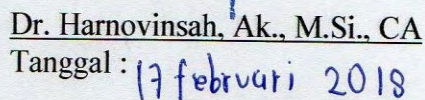 Dr. Harnovinsah, Ak., M.Si., CA
Tanggal : 17 februari 2018